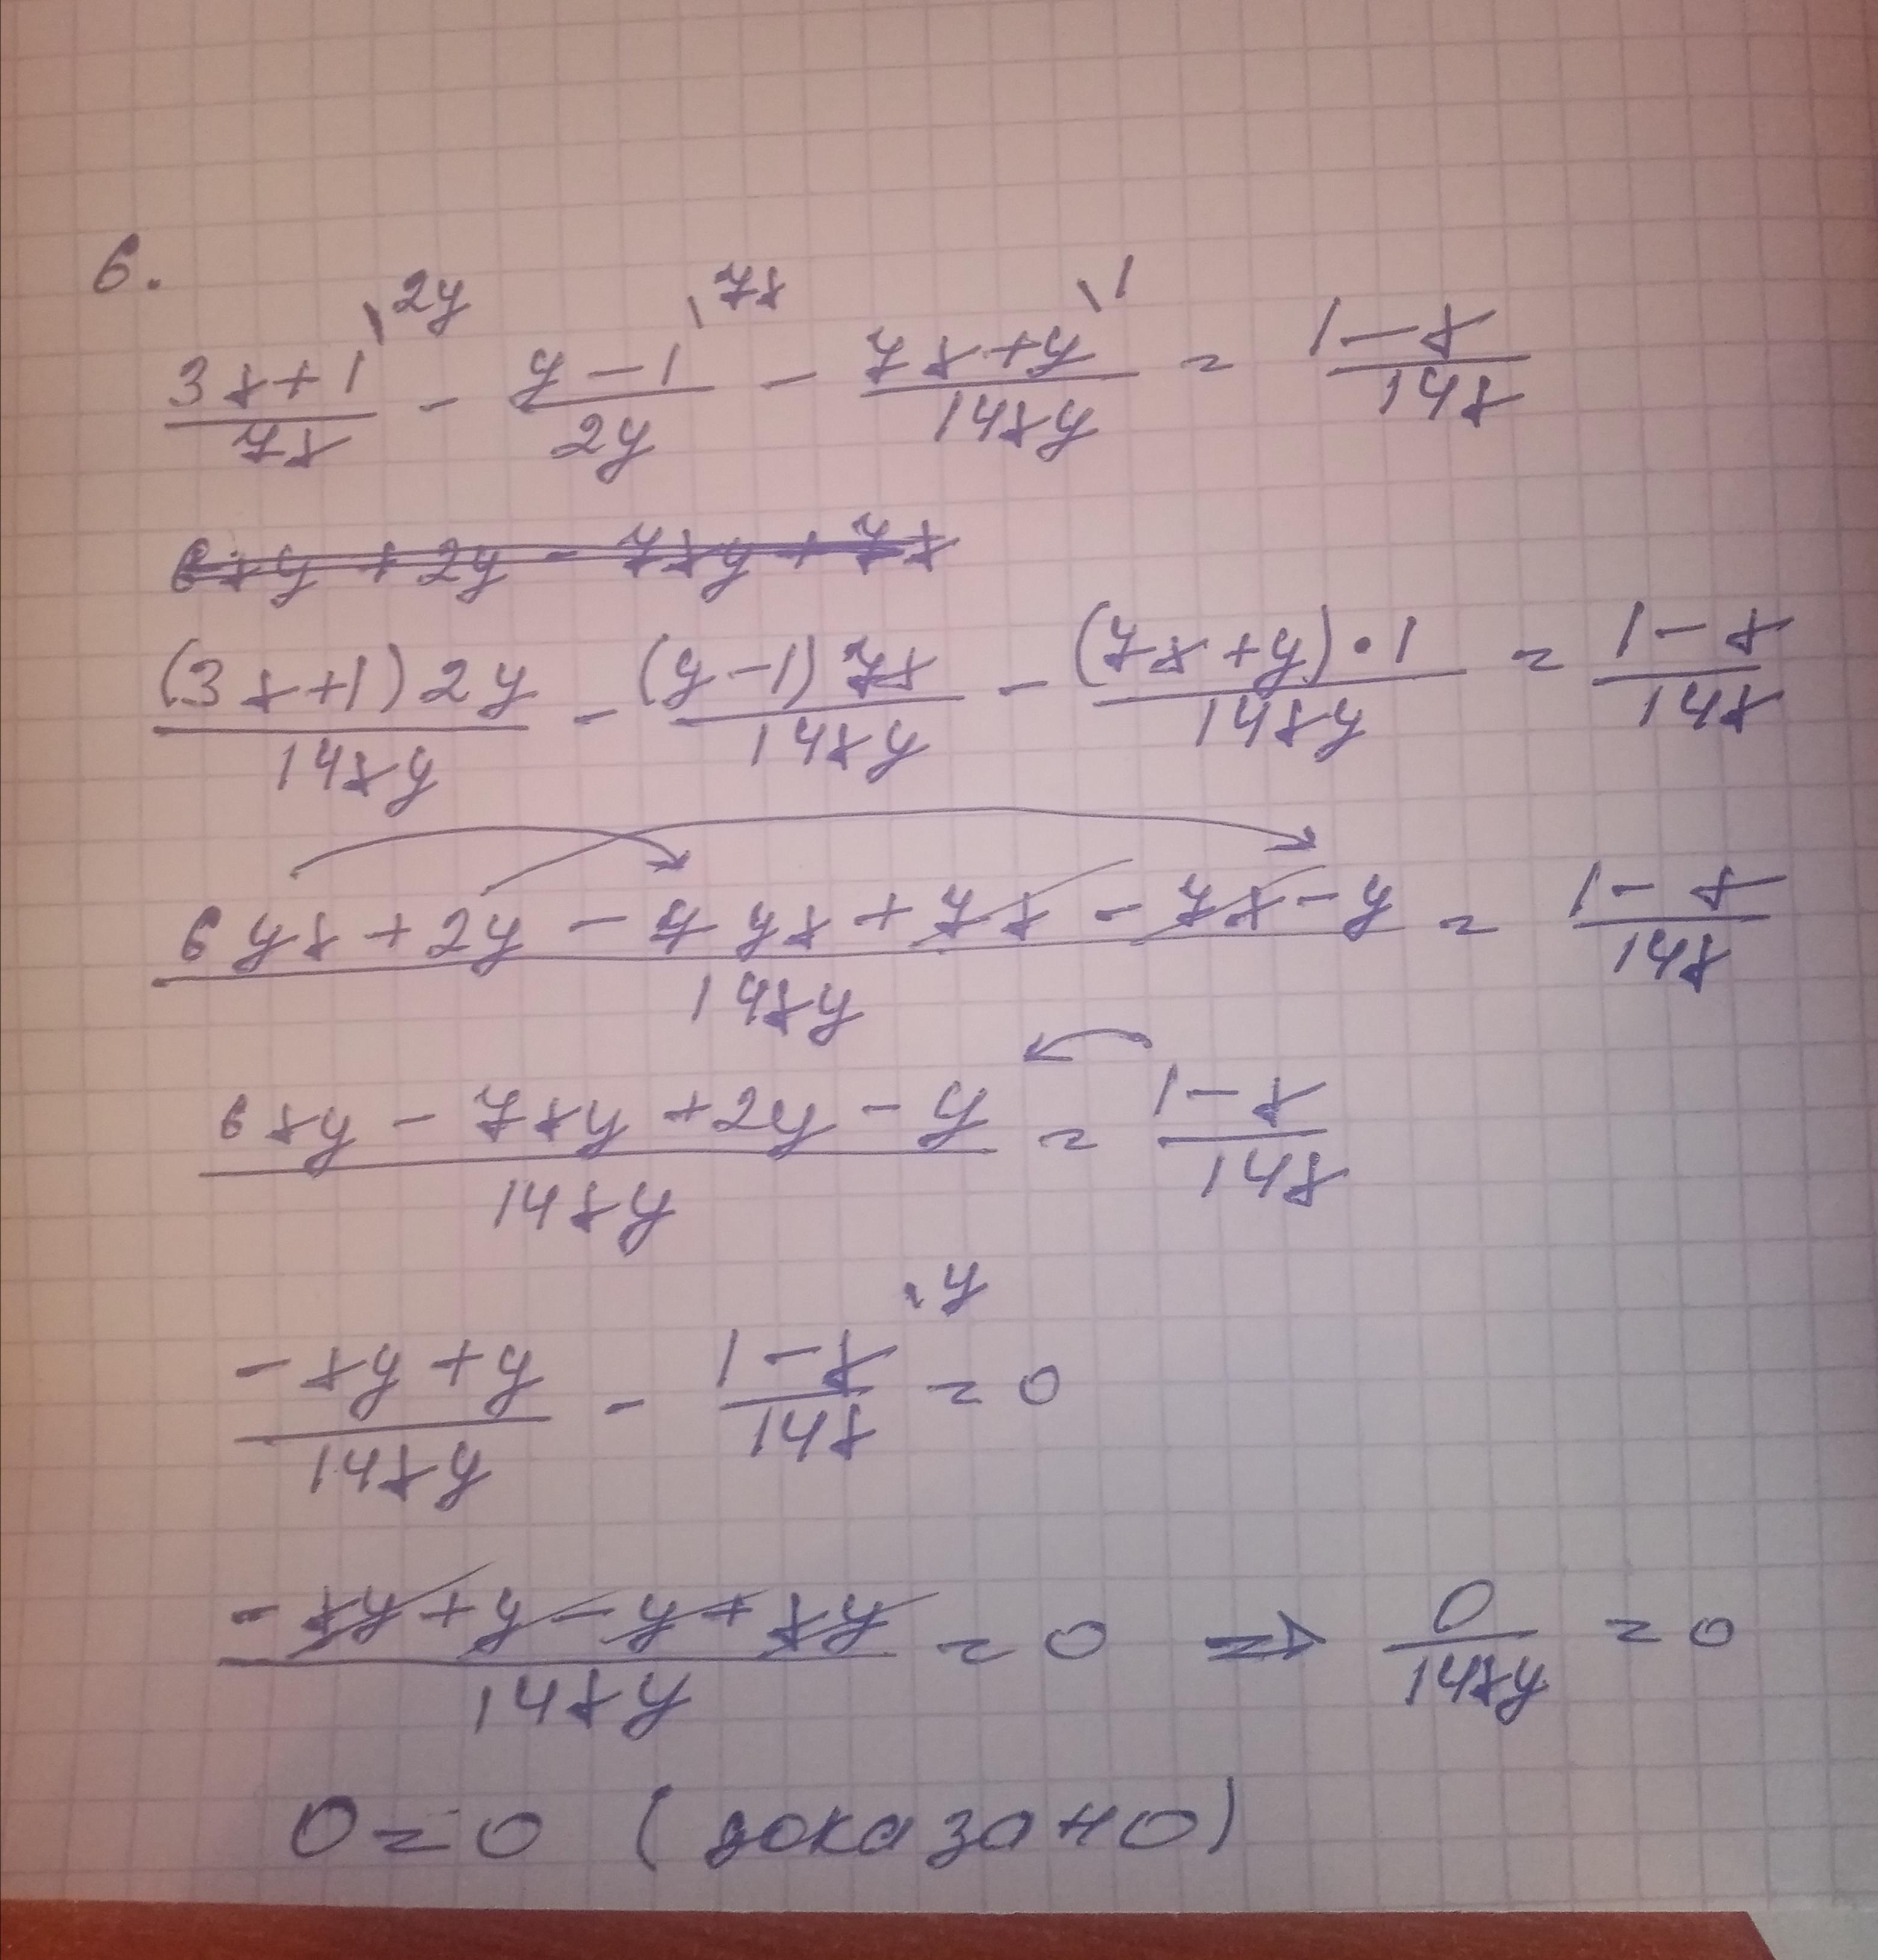 6.
\2y \7x \1
3x+1/7x - y-1/2y - 7x+y/14xy = 1-x/14x
6xy + 2y - 7xy + 7x
(3x+1)2y/14xy - (y-1)7x/14xy - (7x+y)·1/14xy = 1-x/14x
6yx + 2y - 7yx + 7x - 7x - y/14xy = 1-x/14x
6xy - 7xy + 2y - y/14xy = 1-x/14x
-xy + y/14xy - 1-x\y/14x = 0
-xy + y - y + xy/14xy = 0 => 0/14xy = 0
0 = 0 (доказано)